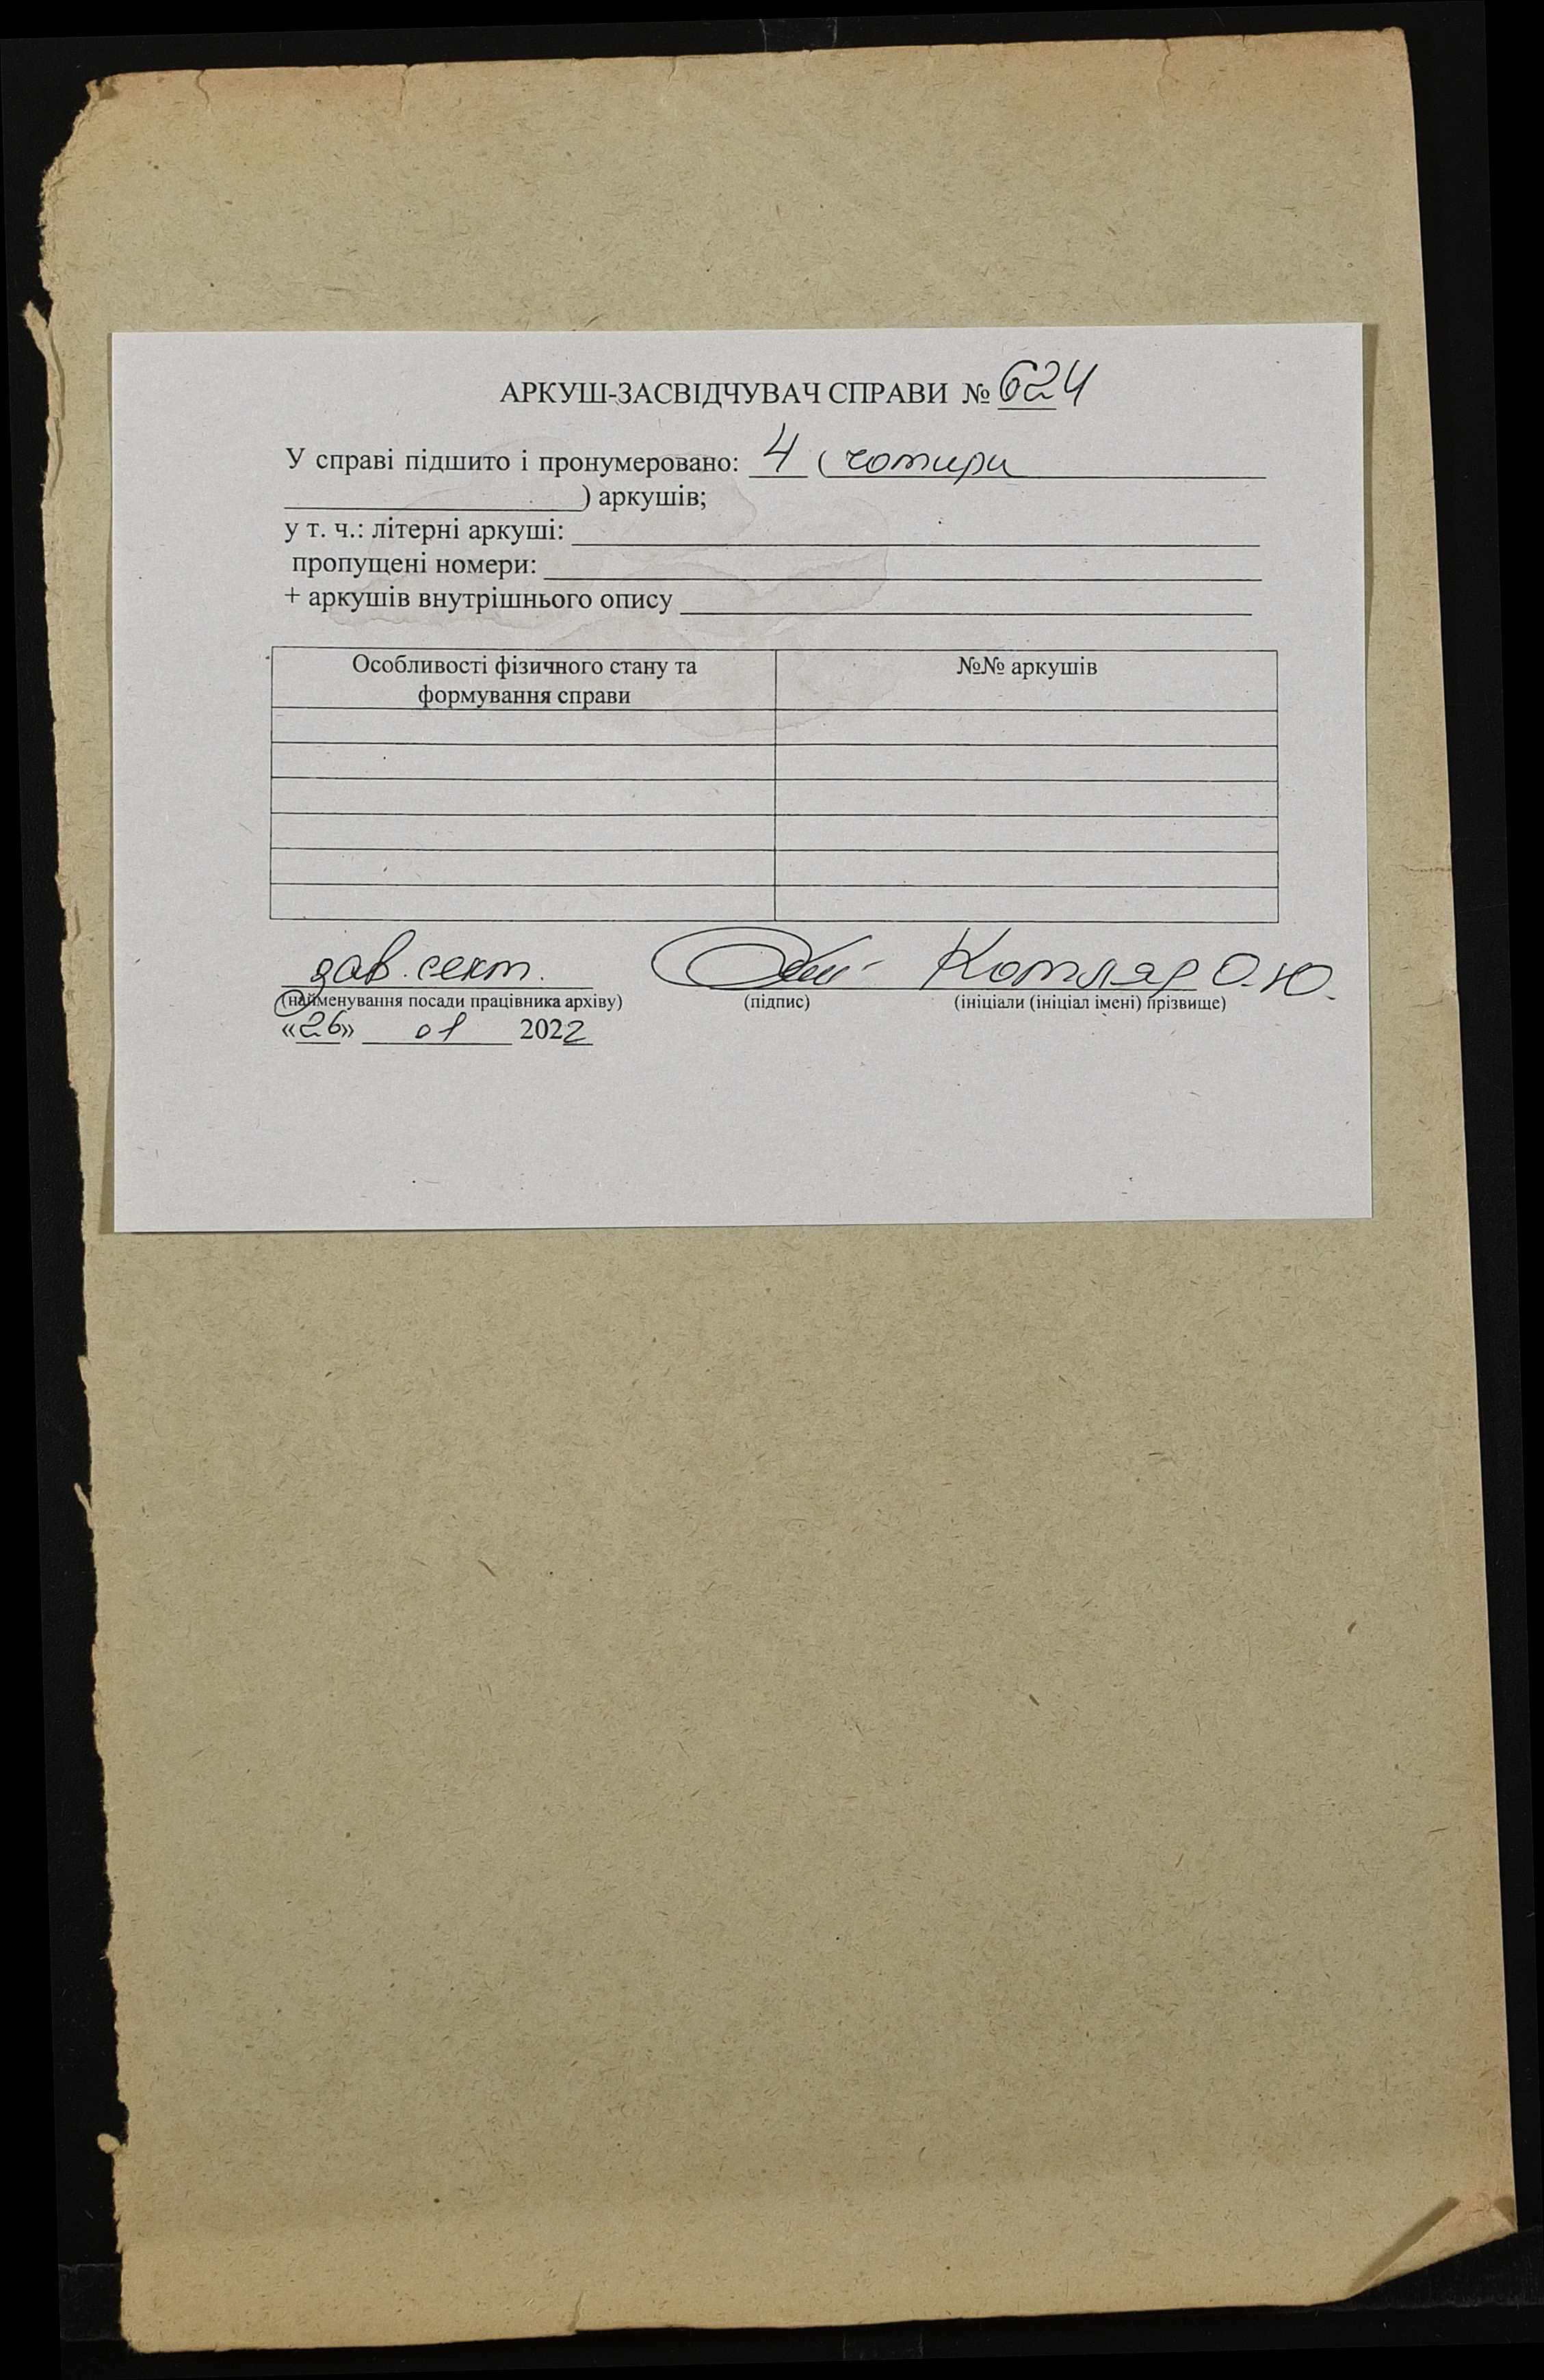 АРКУШ-ЗАСВІДЧУВАЧ СПРАВИ № 624
У справі підшито і пронумеровано: 4 (чотири
) аркушів;
у т. ч.: літерні аркуші:
пропущені номери:
+ аркушів внутрішнього опису
Особливості фізичного стану та формування справи №№ аркушів
зав. сект. Котляр О.Ю.
(найменування посади працівника архіву) (підпис) (ініціали (ініціал імені) прізвище)
«26» 01 2022